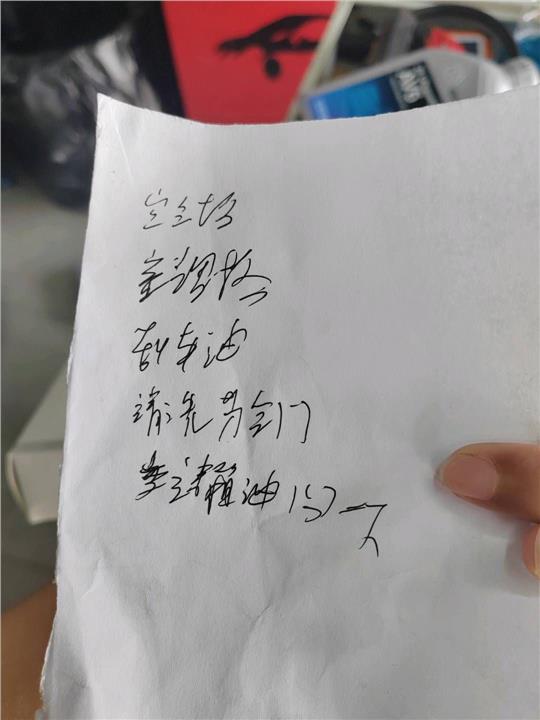 空气格
空调格
刹车油
清洗节气门
变速箱油